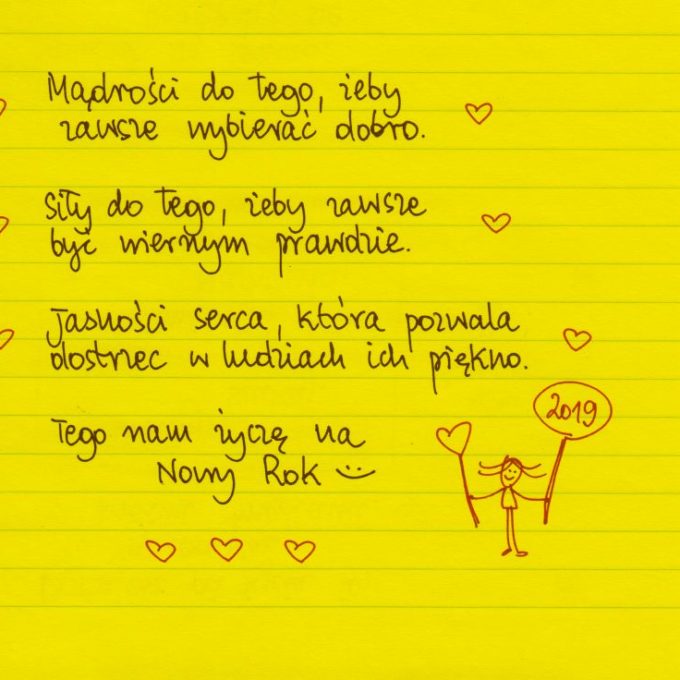 Mądrości do tego, żeby
zawsze wybierać dobro.
Siły do tego, żeby zawsze
być wiernym prawdzie.
Jasności serca, która pozwala
dostrzec w ludziach ich piękno.
Tego nam życzę na
Nowy Rok :)
2019